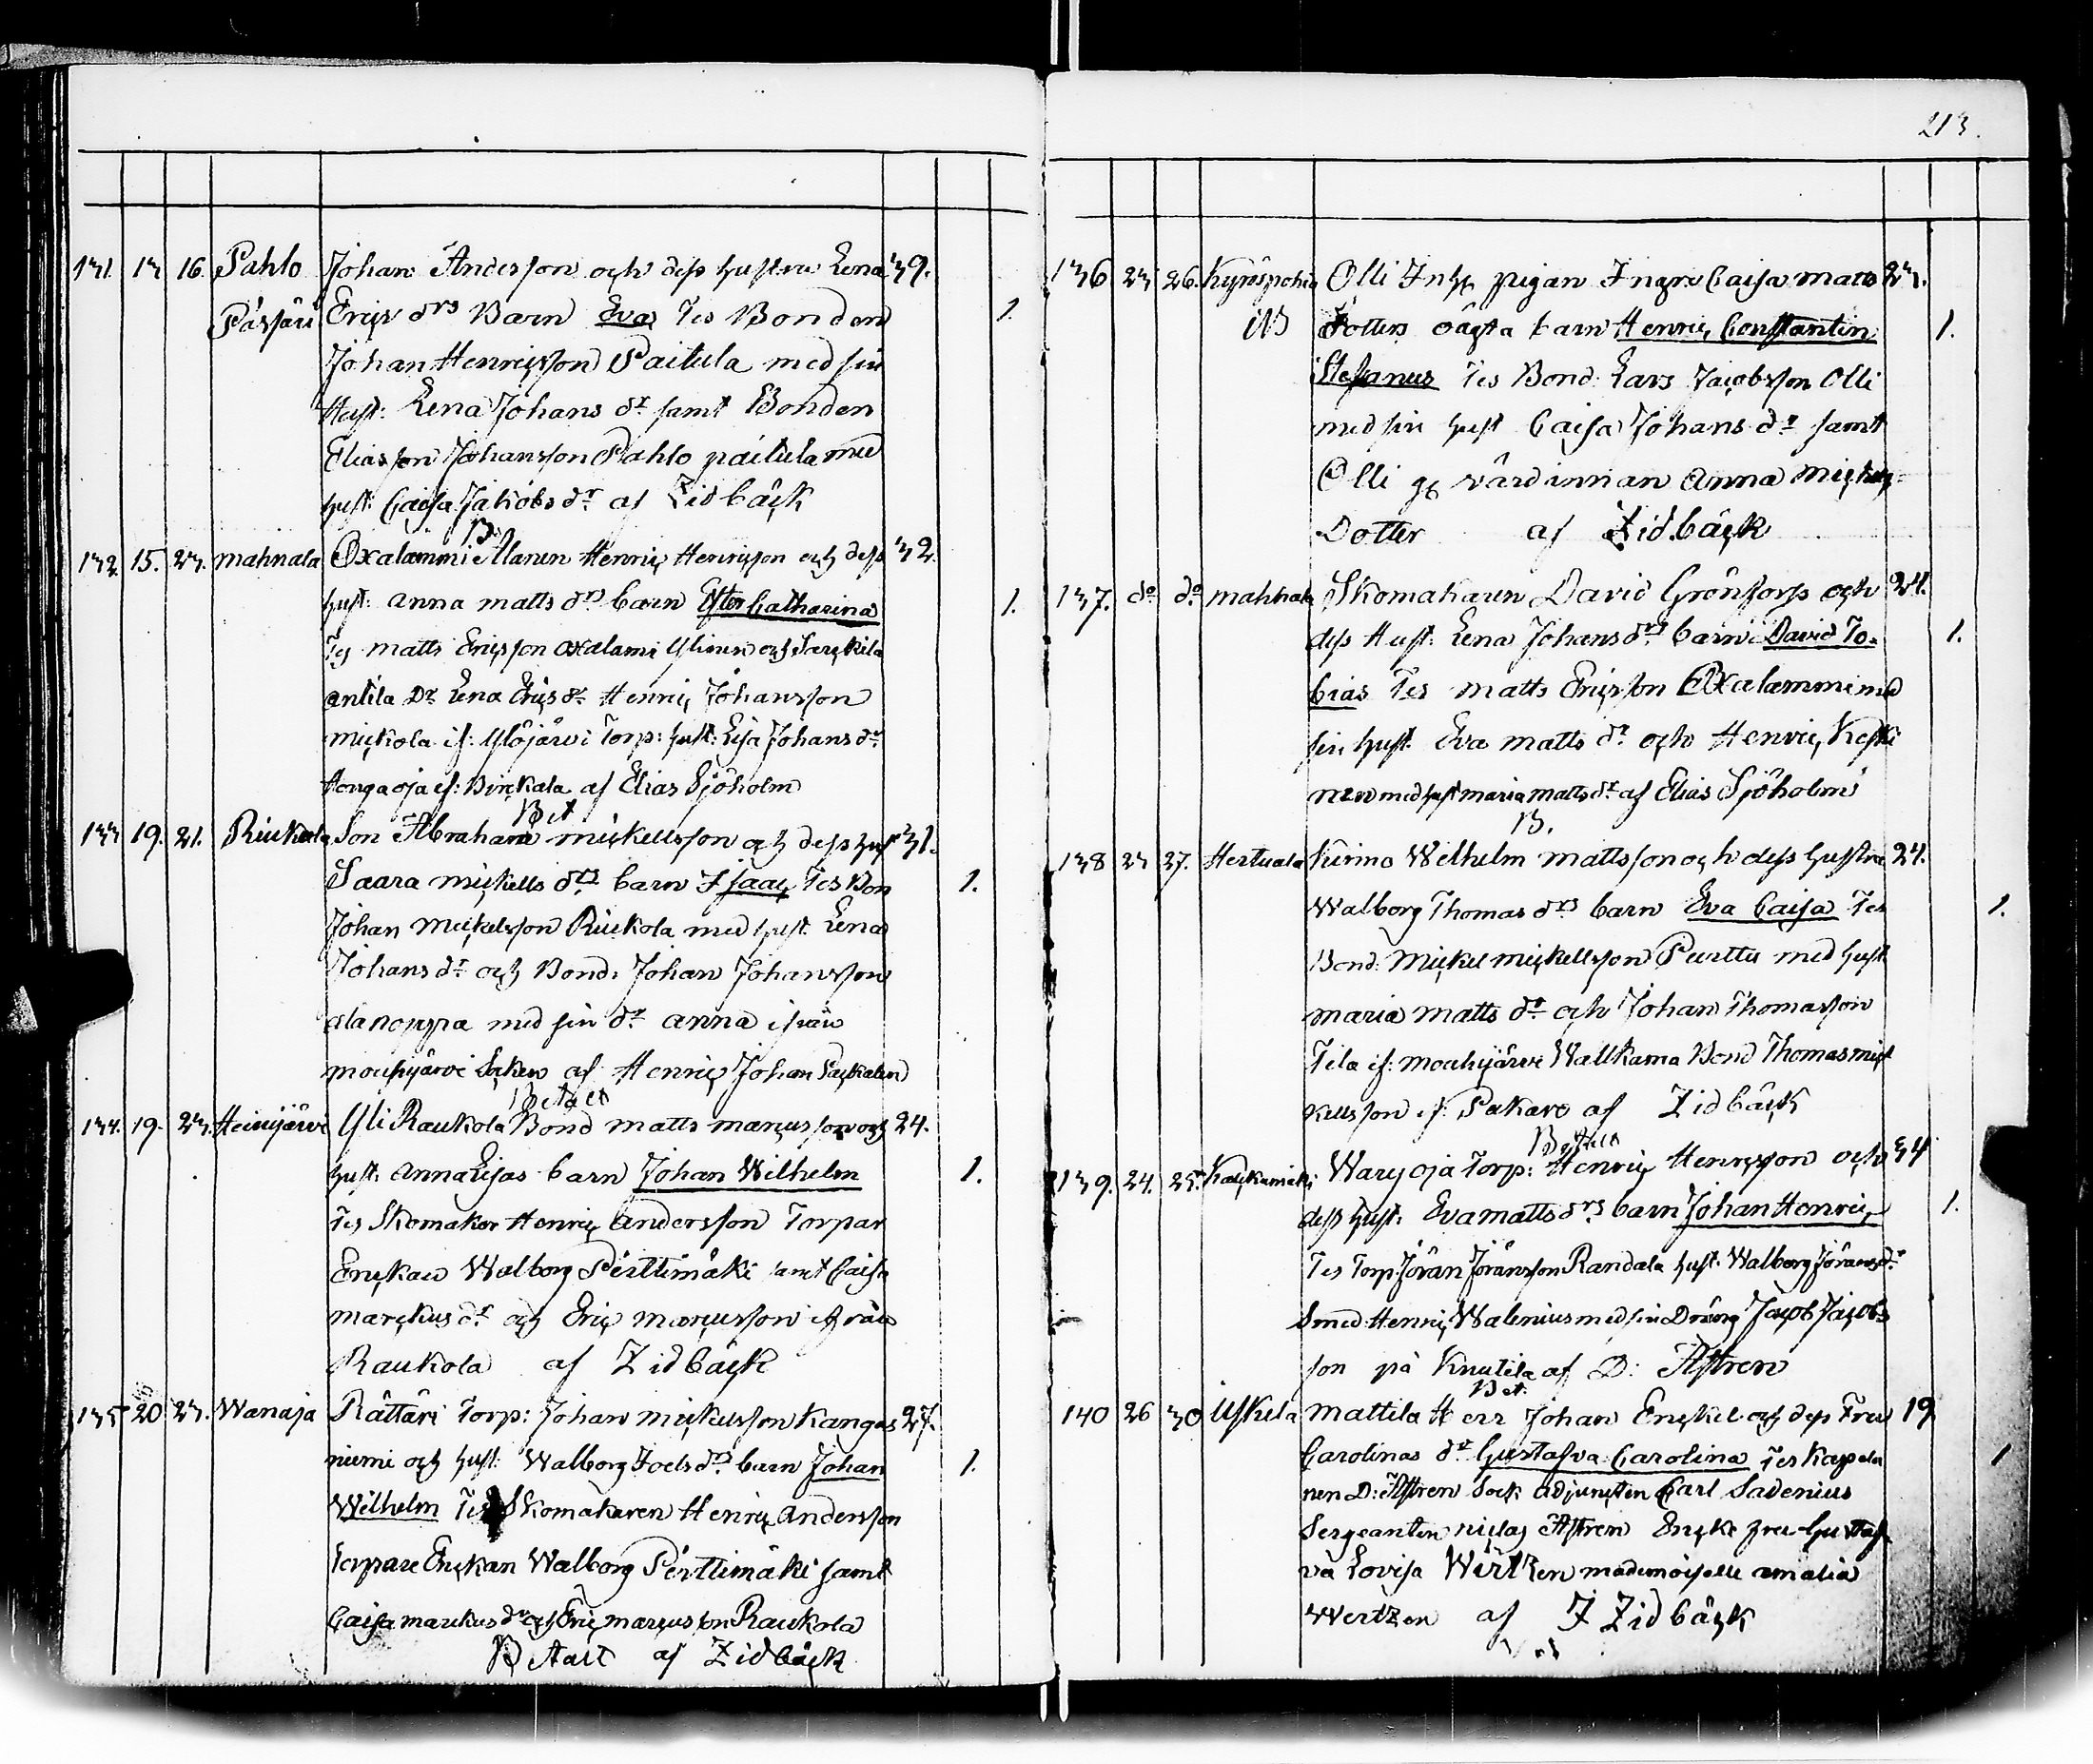 213.
131. 13 16. Pahlo Johan Andersson och dess hustru Lena 39.
Påsjari Erics drs Barn Eva Tes Bonden 1.
Johan Henricsson Paitula med sin
Hust: Lena Johans dr samt Bonden
Eliasson Johansson Pahlo paitula med
hust: Caisa Jakobs dr af Zidbäck
B.
132. 15. 23. mahnala Oxalammi Ylanen Henric Henricson och dess 32.
hust: anna matts drs barn Ester Catharina 1.
Ts matts Ericsson oxalami Ylinen och Sarckila
antila Dr Lena Erics dr Henric Johansson
mickola if: Ylöjärvi Torp: hust: Lisa Johans dr
Hongaoja if: Birckala af Elias Sjöholm
Bet
133 19. 21. Riukola Son Abraham mickellsson och dess hust 31.
Saara mickells drs barn Isaac Tes Bon 1.
Johan Mickelsson Riukola med hust. Lena
Johans dr och Bond: Johan Johansson
alanoppa med sin dr anna ifrån
mouhijärvi Socken af Henric Johan Packalen
Betalt
134. 19. 23. Heinijärvi Yli Raukola Bond matts marcusson och 24.
hust: anna Lisas barn Johan Wilhelm 1.
Tes Skomakar Henric andersson Torpar
Enckan Walborg Perttimäki samt Caisa
marckus dr och Eric marcusson ifrån
Raukola af Zidbäck
135 20 23. Wanaja Rättäri Torp: Johan mickelsson Kangas 27.
niemi och hust: Walborg Joels drs barn Johan 1.
Wilhelm Tes Skomakaren Henric andersson
torpare Enckan Walborg Perttimäki samt
Caisa markus dr och Eric marcusson Raukola
Betalt af Zidbäck
136 23 26. Kyröspohia Olli Inhs pigan Ingre Caisa matts 23.
NB Dotters oägta barn Henric Constantin 1.
Stefanus Tes Bond: Lars Jacobsson Olli
med sin hust Caisa Johans dr samt
Olli g: värdinnan anna mickels
Dotter af Zidbäck
137. do do mahnala Skomakaren David Grönfors och 24.
dess Hust: Lena Johans drs barn David To- 1.
bias Tes matts Ericsson Oxalammi med
sin hust. Eva matts dr och Henric Keski
nen med hust maria matts dr af Elias Sjöholm
B.
138 23 27. Hertuala Kirimo Welhelm mattsson och dess hustru 24.
Walborg Thomas drs barn Eva Caisa Tes 1.
Bond: Mickel mickellsson Perttu med hust
maria matts dr och Johan Thomasson
Tila if: mouhijärvi Wallkama Bond Thomas mic
kellsson if: Sakara af Zidbäck
Betalt
139. 24. 25. Kaickamäki Waryoja Torp: Henric Henricsson och 34
dess hust: Eva matts drs barn Johan Henric 1.
Tes Torp: Jöran Jöransson Randala hust. Walborg Jörans dr
Smed Henric Walenius med sin Dräng Jacob Jacobs
son på Knutila af D: Åstren
Bet.
140 26 30 Uskela mattila Herr Johan Enckel och dess Fru 19
Carolinas dr Gustafva Carolina Tes Kapela 1
nen D: Åstren Sock adjuncten Carl Sadenius
Sergeanten niclas Åstren Encke fru Gustaf
va Lovisa Wirtzen mademoiselle amalia
Wertzen af J Zidbäck